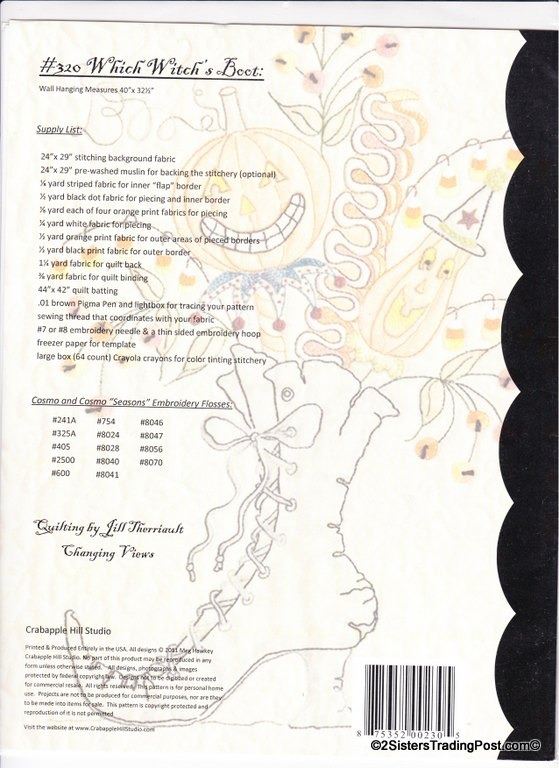 #320 Which Witch's Boot:
Wall Hanging Measures 40"x 32½"
Supply List:
24"x 29" stitching background fabric
24"x 29" pre-washed muslin for backing the stitchery (optional)
yard striped fabric for inner "flap" border
½ yard black dot fabric for piecing and inner border
yard each of four orange print fabrics for piecing
¼ yard white fabric for piecing
½ yard orange print fabric for outer areas of pieced borders
½ yard black print fabric for outer border
1¼ yard fabric for quilt back
yard fabric for quilt binding
44"x 42" quilt batting
.01 brown Pigma Pen and lightbox for tracing your pattern
sewing thread that coordinates with your fabric
#7 or #8 embroidery needle & a thin sided embroidery hoop
freezer paper for template
large box (64 count) Crayola crayons for color tinting stitchery
Cosmo and Cosmo "Seasons" Embroidery Flosses:
#241A #754 #8046
#325A #8024 #8047
#405 #8028 #8056
#2500 #8040 #8070
#600 #8041
Quilting by Jill Therriault
Changing Views
Crabapple Hill Studio
Printed & Produced Entirely in the USA. All designs © 2011 Meg Hawkey
Crabapple Hill Studio. No part of this product may be reproduced in any
form unless otherwise stated. All designs, photographs & images
protected by federal copyright law. Designs not to be copied or created
for commercial resale. All rights reserved. This pattern is for personal home
use. Projects are not to be produced for commercial purposes, nor are they
to be made into items for sale. This pattern is copyright protected and
reproduction of it is not permitted.
Visit the website at www.CrabappleHillStudio.com
8 75352 00230 5
©2SistersTradingPost.com